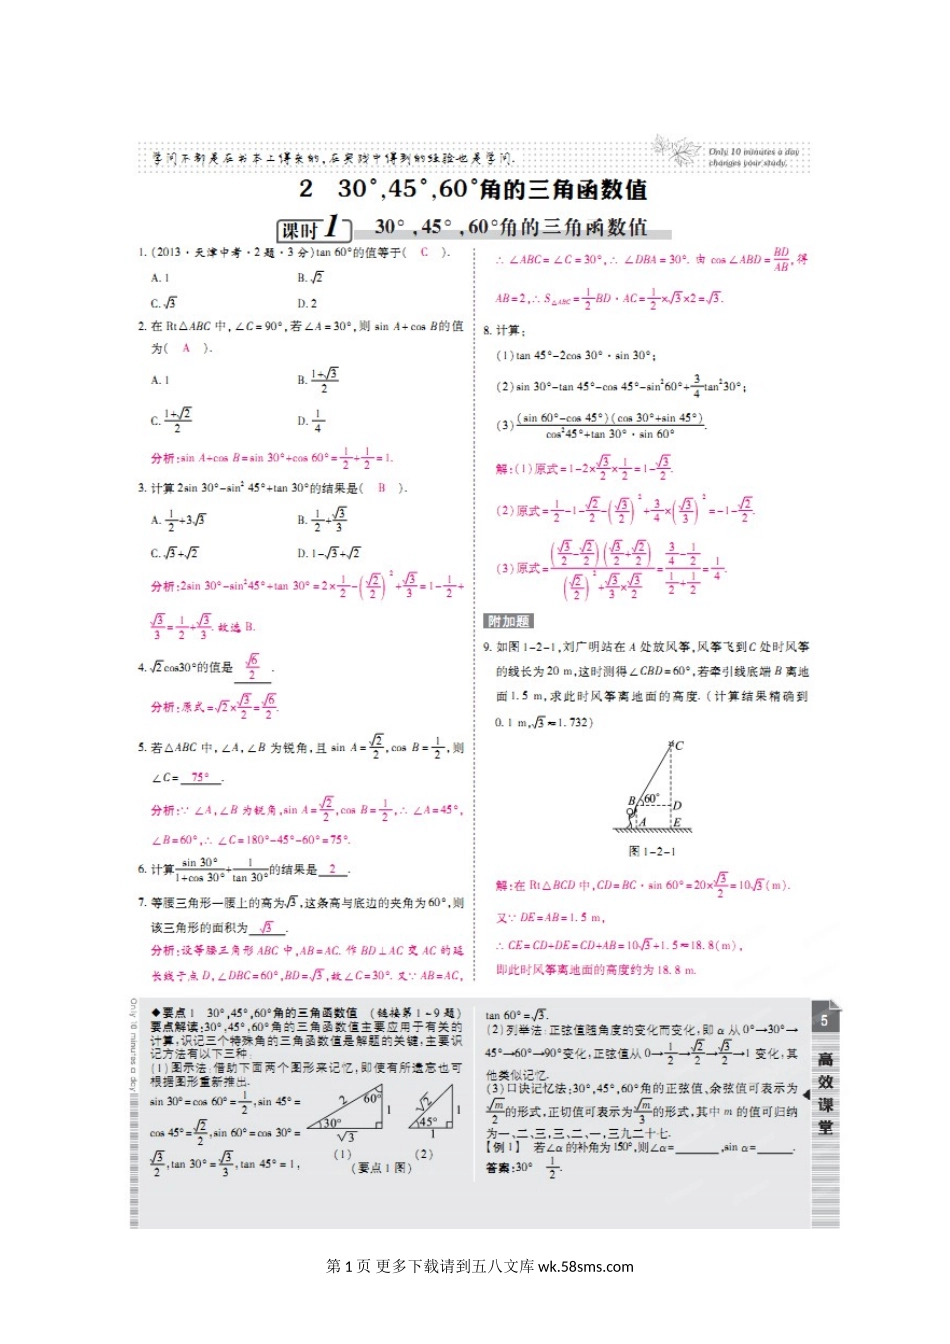 学问不都是在书本上得来的,在实践中得到的经验也是学问.
Only 10 minutes a day
changes your study.
2 30°,45°,60°角的三角函数值
课时1 30°,45°,60°角的三角函数值
1. (2013·天津中考·2题·3分)tan 60°的值等于( C ).
A. 1 B. √2
C. √3 D. 2
2. 在 Rt△ABC 中,∠C=90°,若∠A=30°,则 sin A+cos B的值
为( A ).
A. 1 B. (1+√3)/2
C. (1+√2)/2 D. 1/4
分析:sin A+cos B=sin 30°+cos 60°=1/2+1/2=1.
3. 计算 2sin 30°-sin² 45°+tan 30°的结果是( B ).
A. 1/2+3√3 B. 1/2+√3/3
C. √3+√2 D. 1-√3+√2
分析:2sin 30°-sin²45°+tan 30°=2×1/2-(√2/2)²+√3/3=1-1/2+
√3/3=1/2+√3/3. 故选 B.
4. √2cos30°的值是 √6/2 .
分析:原式=√2×√3/2=√6/2.
5. 若△ABC 中,∠A,∠B 为锐角,且 sin A=√2/2,cos B=1/2,则
∠C= 75° .
分析:∵ ∠A,∠B 为锐角,sin A=√2/2,cos B=1/2,∴ ∠A=45°,
∠B=60°,∴ ∠C=180°-45°-60°=75°.
6. 计算 sin 30°/(1+cos 30°)+1/tan 30°的结果是 2 .
7. 等腰三角形一腰上的高为√3,这条高与底边的夹角为60°,则
该三角形的面积为 √3 .
分析:设等腰三角形 ABC 中,AB=AC. 作 BD⊥AC 交 AC 的延
长线于点 D,∠DBC=60°,BD=√3,故∠C=30°. 又∵ AB=AC,
∴ ∠ABC=∠C=30°,∴ ∠DBA=30°. 由 cos∠ABD=BD/AB,得
AB=2,∴ S△ABC=1/2BD·AC=1/2×√3×2=√3.
8. 计算:
(1)tan 45°-2cos 30°·sin 30°;
(2)sin 30°-tan 45°-cos 45°-sin²60°+3/4tan²30°;
(3)(sin 60°-cos 45°)(cos 30°+sin 45°)/(cos²45°+tan 30°·sin 60°).
解:(1)原式=1-2×√3/2×1/2=1-√3/2.
(2)原式=1/2-1-√2/2-(√3/2)²+3/4×(√3/3)²=-1-√2/2.
(3)原式=(√3/2-√2/2)(√3/2+√2/2)/((√2/2)²+√3/3×√3/2)=(3/4-1/2)/(1/2+1/2)=1/4.
附加题
9. 如图1-2-1,刘广明站在 A 处放风筝,风筝飞到C 处时风筝
的线长为20 m,这时测得∠CBD=60°,若牵引线底端 B 离地
面 1.5 m,求此时风筝离地面的高度.(计算结果精确到
0.1 m,√3≈1.732)
C
B 60° D
A E
图 1-2-1
解:在 Rt△BCD 中,CD=BC·sin 60°=20×√3/2=10√3(m).
又∵ DE=AB=1.5 m,
∴ CE=CD+DE=CD+AB=10√3+1.5≈18.8(m),
即此时风筝离地面的高度约为 18.8 m.
Only 10 minutes a day
◆要点1 30°,45°,60°角的三角函数值 (链接第1~9题)
要点解读:30°,45°,60°角的三角函数值主要应用于有关的
计算,识记三个特殊角的三角函数值是解题的关键,主要识
记方法有以下三种.
(1)图示法:借助下面两个图形来记忆,即使有所遗忘也可
根据图形重新推出.
sin 30°=cos 60°=1/2,sin 45°=
cos 45°=√2/2,sin 60°=cos 30°=
√3/2,tan 30°=√3/3,tan 45°=1,
2 60° 1 30° √3
√2 1 45° 1
(1) (2)
(要点1图)
tan 60°=√3.
(2)列举法:正弦值随角度的变化而变化,即 α 从 0°→30°→
45°→60°→90°变化,正弦值从 0→1/2→√2/2→√3/2→1 变化,其
他类似记忆.
(3)口诀记忆法:30°,45°,60°角的正弦值、余弦值可表示为
√m/2的形式,正切值可表示为√m/3的形式,其中 m 的值可归纳
为一、二、三,三、二、一,三九二十七.
【例1】 若∠α的补角为150°,则∠α=______,sin α=______.
答案:30° 1/2.
5
高效课堂
第 1 页 更多下载请到五八文库 wk.58sms.com